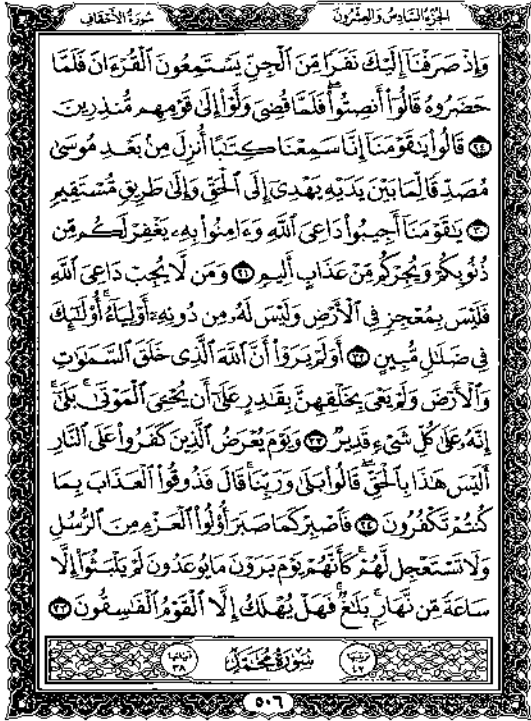 الجزء السادس والعشرون سورة الأحقاف
وَإِذْ صَرَفْنَآ إِلَيْكَ نَفَرًا مِّنَ ٱلْجِنِّ يَسْتَمِعُونَ ٱلْقُرْءَانَ فَلَمَّا
حَضَرُوهُ قَالُوٓا۟ أَنصِتُوا۟ ۖ فَلَمَّا قُضِىَ وَلَّوْا۟ إِلَىٰ قَوْمِهِم مُّنذِرِينَ
٢٩ قَالُوا۟ يَٰقَوْمَنَآ إِنَّا سَمِعْنَا كِتَٰبًا أُنزِلَ مِنۢ بَعْدِ مُوسَىٰ
مُصَدِّقًا لِّمَا بَيْنَ يَدَيْهِ يَهْدِىٓ إِلَى ٱلْحَقِّ وَإِلَىٰ طَرِيقٍ مُّسْتَقِيمٍ
٣٠ يَٰقَوْمَنَآ أَجِيبُوا۟ دَاعِىَ ٱللَّهِ وَءَامِنُوا۟ بِهِۦ يَغْفِرْ لَكُم مِّن
ذُنُوبِكُمْ وَيُجِرْكُم مِّنْ عَذَابٍ أَلِيمٍ ٣١ وَمَن لَّا يُجِبْ دَاعِىَ ٱللَّهِ
فَلَيْسَ بِمُعْجِزٍ فِى ٱلْأَرْضِ وَلَيْسَ لَهُۥ مِن دُونِهِۦٓ أَوْلِيَآءُ ۚ أُو۟لَٰٓئِكَ
فِى ضَلَٰلٍ مُّبِينٍ ٣٢ أَوَلَمْ يَرَوْا۟ أَنَّ ٱللَّهَ ٱلَّذِى خَلَقَ ٱلسَّمَٰوَٰتِ
وَٱلْأَرْضَ وَلَمْ يَعْىَ بِخَلْقِهِنَّ بِقَٰدِرٍ عَلَىٰٓ أَن يُحْۦِىَ ٱلْمَوْتَىٰ ۚ بَلَىٰٓ
إِنَّهُۥ عَلَىٰ كُلِّ شَىْءٍ قَدِيرٌ ٣٣ وَيَوْمَ يُعْرَضُ ٱلَّذِينَ كَفَرُوا۟ عَلَى ٱلنَّارِ
أَلَيْسَ هَٰذَا بِٱلْحَقِّ ۖ قَالُوا۟ بَلَىٰ وَرَبِّنَا ۚ قَالَ فَذُوقُوا۟ ٱلْعَذَابَ بِمَا
كُنتُمْ تَكْفُرُونَ ٣٤ فَٱصْبِرْ كَمَا صَبَرَ أُو۟لُوا۟ ٱلْعَزْمِ مِنَ ٱلرُّسُلِ
وَلَا تَسْتَعْجِل لَّهُمْ ۚ كَأَنَّهُمْ يَوْمَ يَرَوْنَ مَا يُوعَدُونَ لَمْ يَلْبَثُوٓا۟ إِلَّا
سَاعَةً مِّن نَّهَارٍۭ ۚ بَلَٰغٌ ۚ فَهَلْ يُهْلَكُ إِلَّا ٱلْقَوْمُ ٱلْفَٰسِقُونَ ٣٥
ترتيبها ٤٧ سورة محمد آياتها ٣٨
٥٠٦